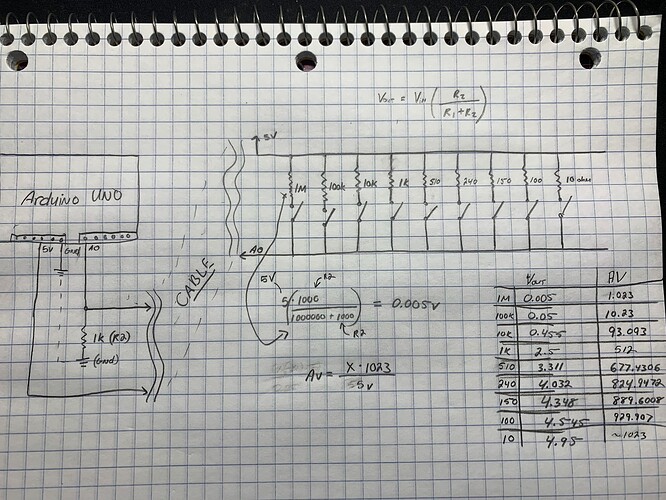 Vout = Vin ( R2 / R1 + R2 )
5V
1M 100k 10k 1k 510 240 150 100 10 ohm
Arduino UNO
5V GND A0
A0
CABLE
1k (R2)
(GND)
R2
5V
5 · 1000 / 1000000 + 1000 = 0.005V
R2
AV = X · 1023 / 55V
Vout AV
1M 0.005 1.023
100k 0.05 10.23
10k 0.455 93.093
1k 2.5 512
510 3.311 677.4306
240 4.032 824.9472
150 4.348 889.6008
100 4.545 929.907
10 4.95 ~1023